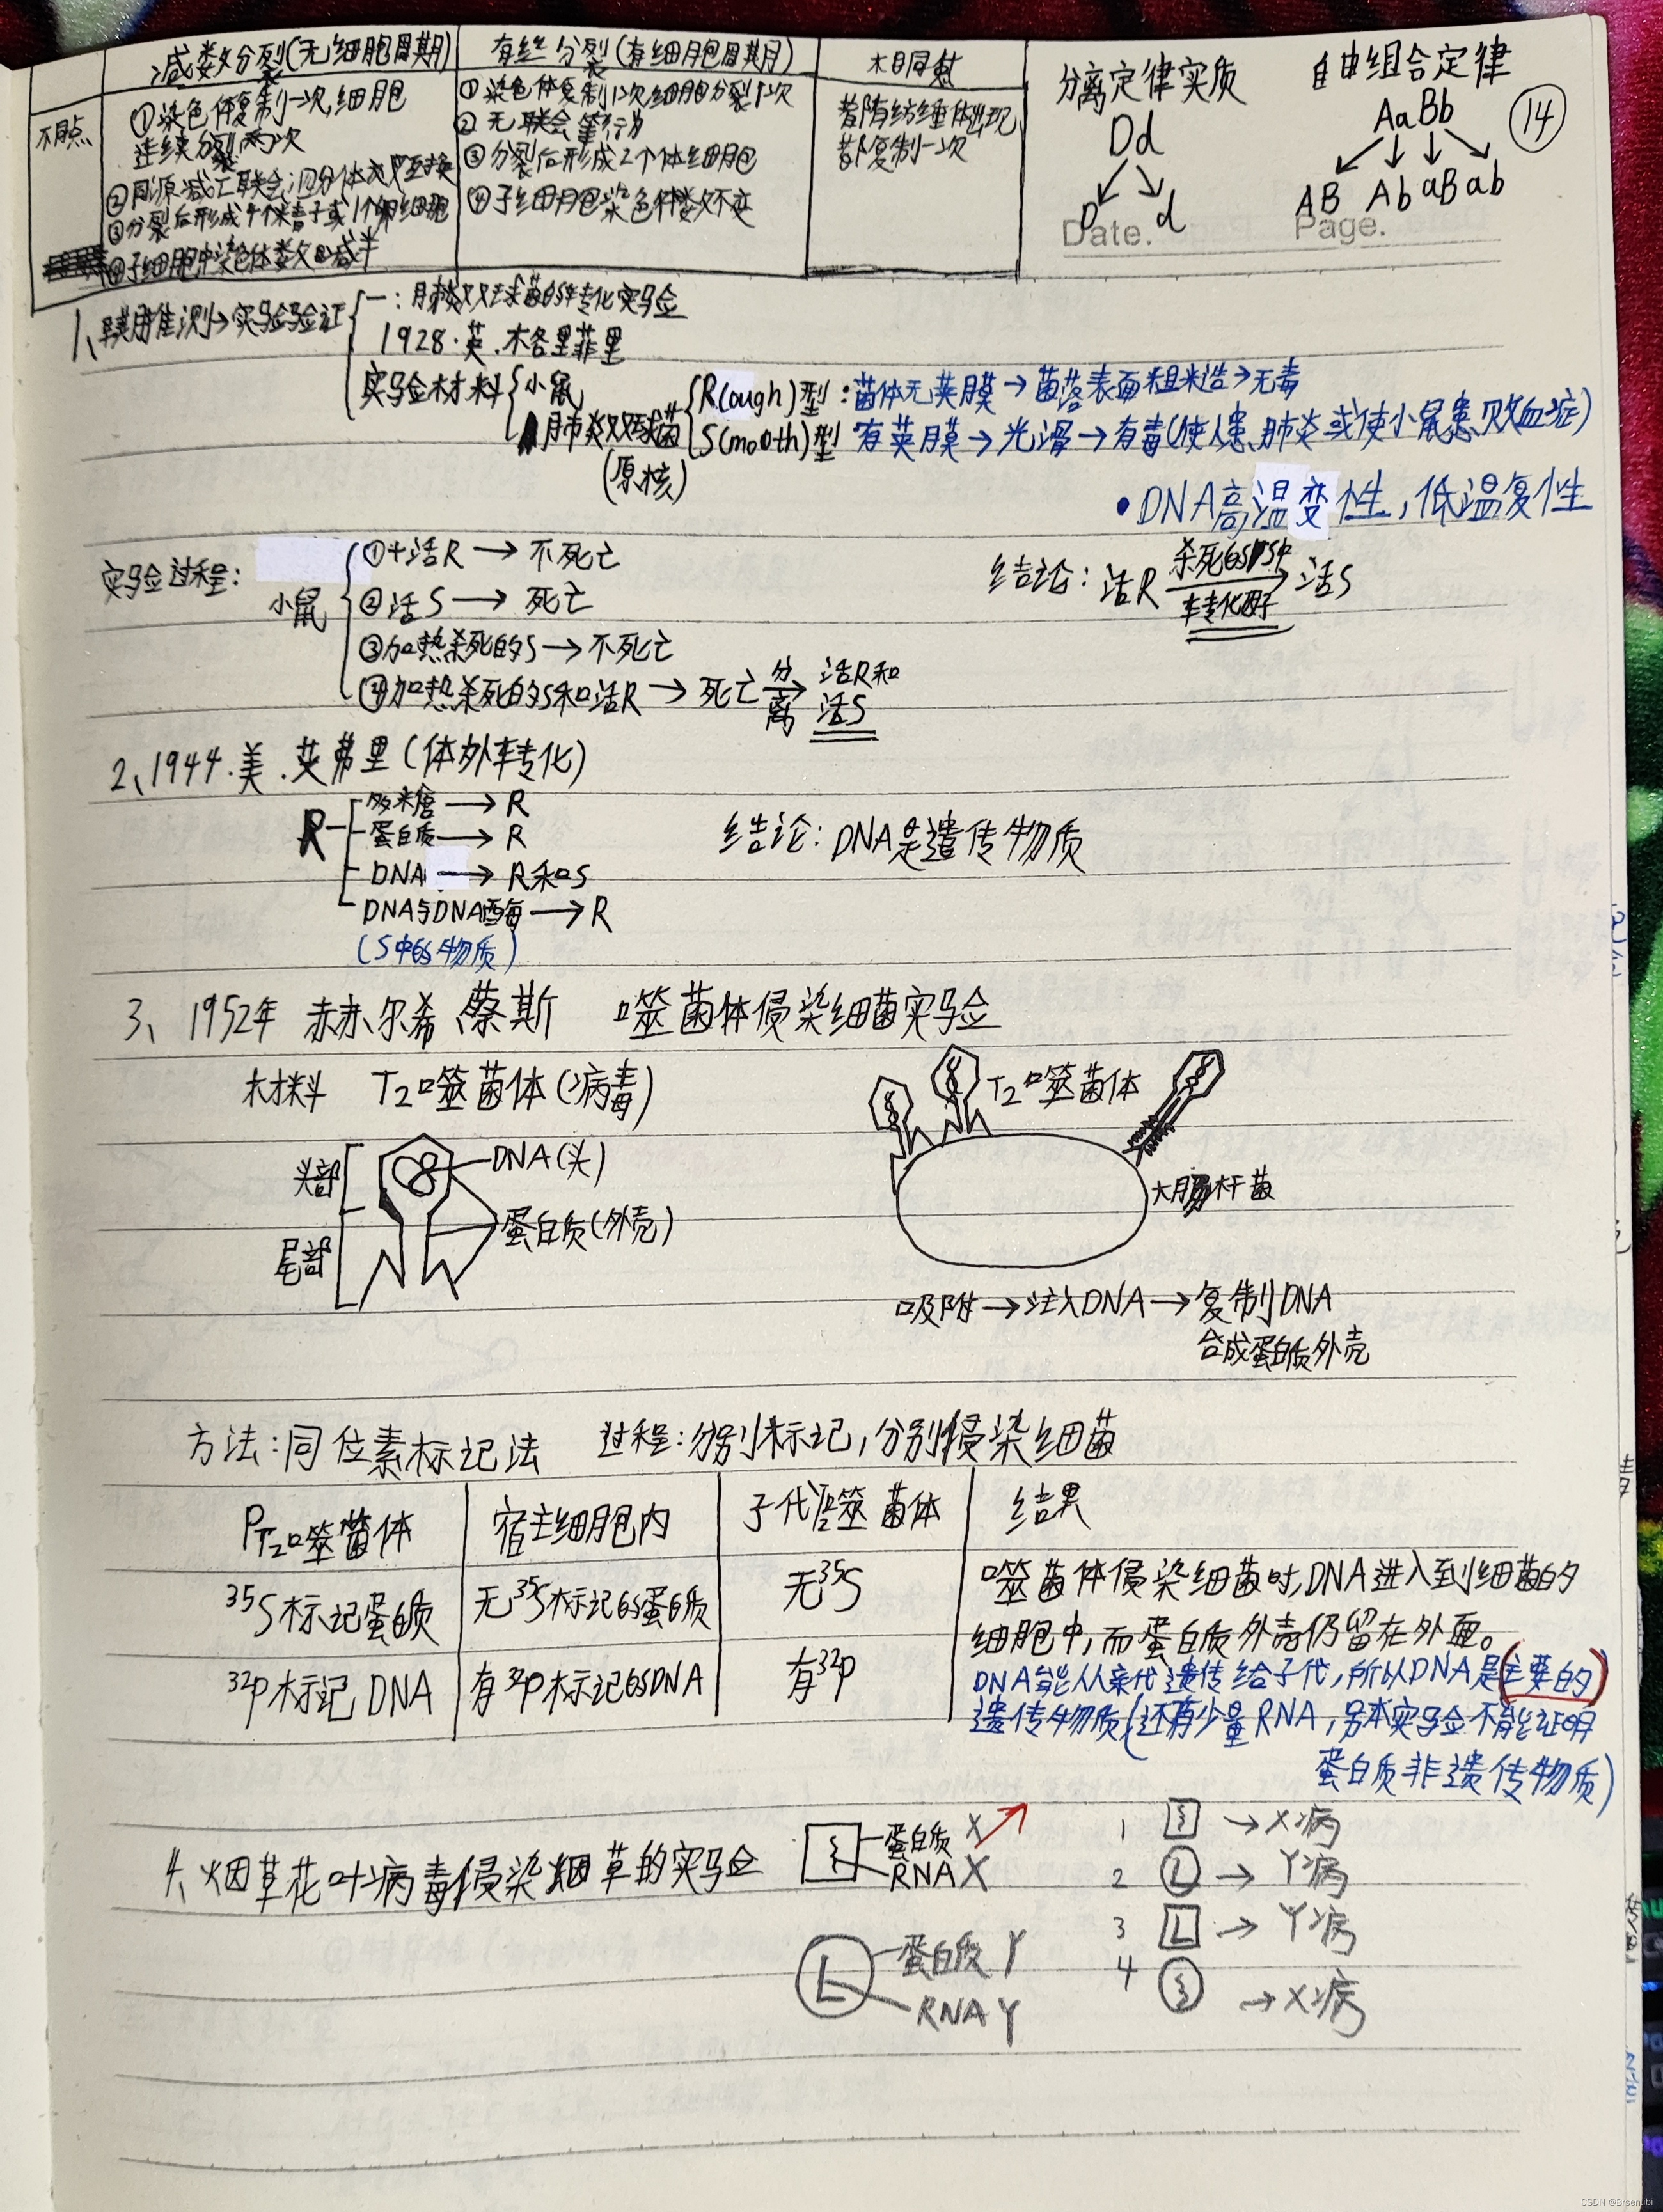 减数分裂(无细胞周期)
有丝分裂(有细胞周期)
相同点
不同点
①染色体复制一次,细胞
连续分裂两次
②同源减Ⅰ联会;四分体或严互换
③分裂后形成4个精子或1个卵细胞
④子细胞中染色体数目减半
①染色体复制1次,细胞分裂1次
②无联会等行为
③分裂后形成2个体细胞
④子细胞染色体数不变
都有纺锤体出现
都复制一次
分离定律实质
Dd
D d
自由组合定律
AaBb
AB Ab aB ab
14
Date.
Page.
1、早期推测→实验验证
一:肺炎双球菌的转化实验
1928.英.格里菲里
实验材料
小鼠
肺炎双球菌
(原核)
R(ough)型:菌体无荚膜→菌落表面粗糙→无毒
S(mooth)型 有荚膜→光滑→有毒(使人患肺炎或使小鼠患败血症)
•DNA高温变性,低温复性
实验过程:
小鼠
①+活R→不死亡
②活S→死亡
③加热杀死的S→不死亡
④加热杀死的S和活R→死亡 分离→ 活R和
活S
结论:活R 杀死的S中 转化因子→ 活S
2、1944.美.艾弗里(体外转化)
R
多糖→R
蛋白质→R
DNA→R和S
DNA与DNA酶→R
(S中的物质)
结论:DNA是遗传物质
3、1952年 赫尔希、蔡斯 噬菌体侵染细菌实验
材料 T2噬菌体(病毒)
头部
尾部
DNA(头)
蛋白质(外壳)
T2噬菌体
大肠杆菌
吸附→注入DNA→复制DNA
合成蛋白质外壳
方法:同位素标记法 过程:分别标记,分别侵染细菌
PT2噬菌体 宿主细胞内 子代噬菌体 结果
35S标记蛋白质 无35S标记的蛋白质 无35S
32P标记DNA 有32P标记的DNA 有32P
噬菌体侵染细菌时,DNA进入到细菌的
细胞中,而蛋白质外壳仍留在外面。
DNA能从亲代遗传给子代,所以DNA是(主要的)
遗传物质(还有少量RNA,另本实验不能证明
蛋白质非遗传物质)
4、烟草花叶病毒侵染烟草的实验
蛋白质 X
RNA X
蛋白质 Y
RNA Y
1 →X病
2 →Y病
3 →Y病
4 →X病
CSDN @Brsentibi